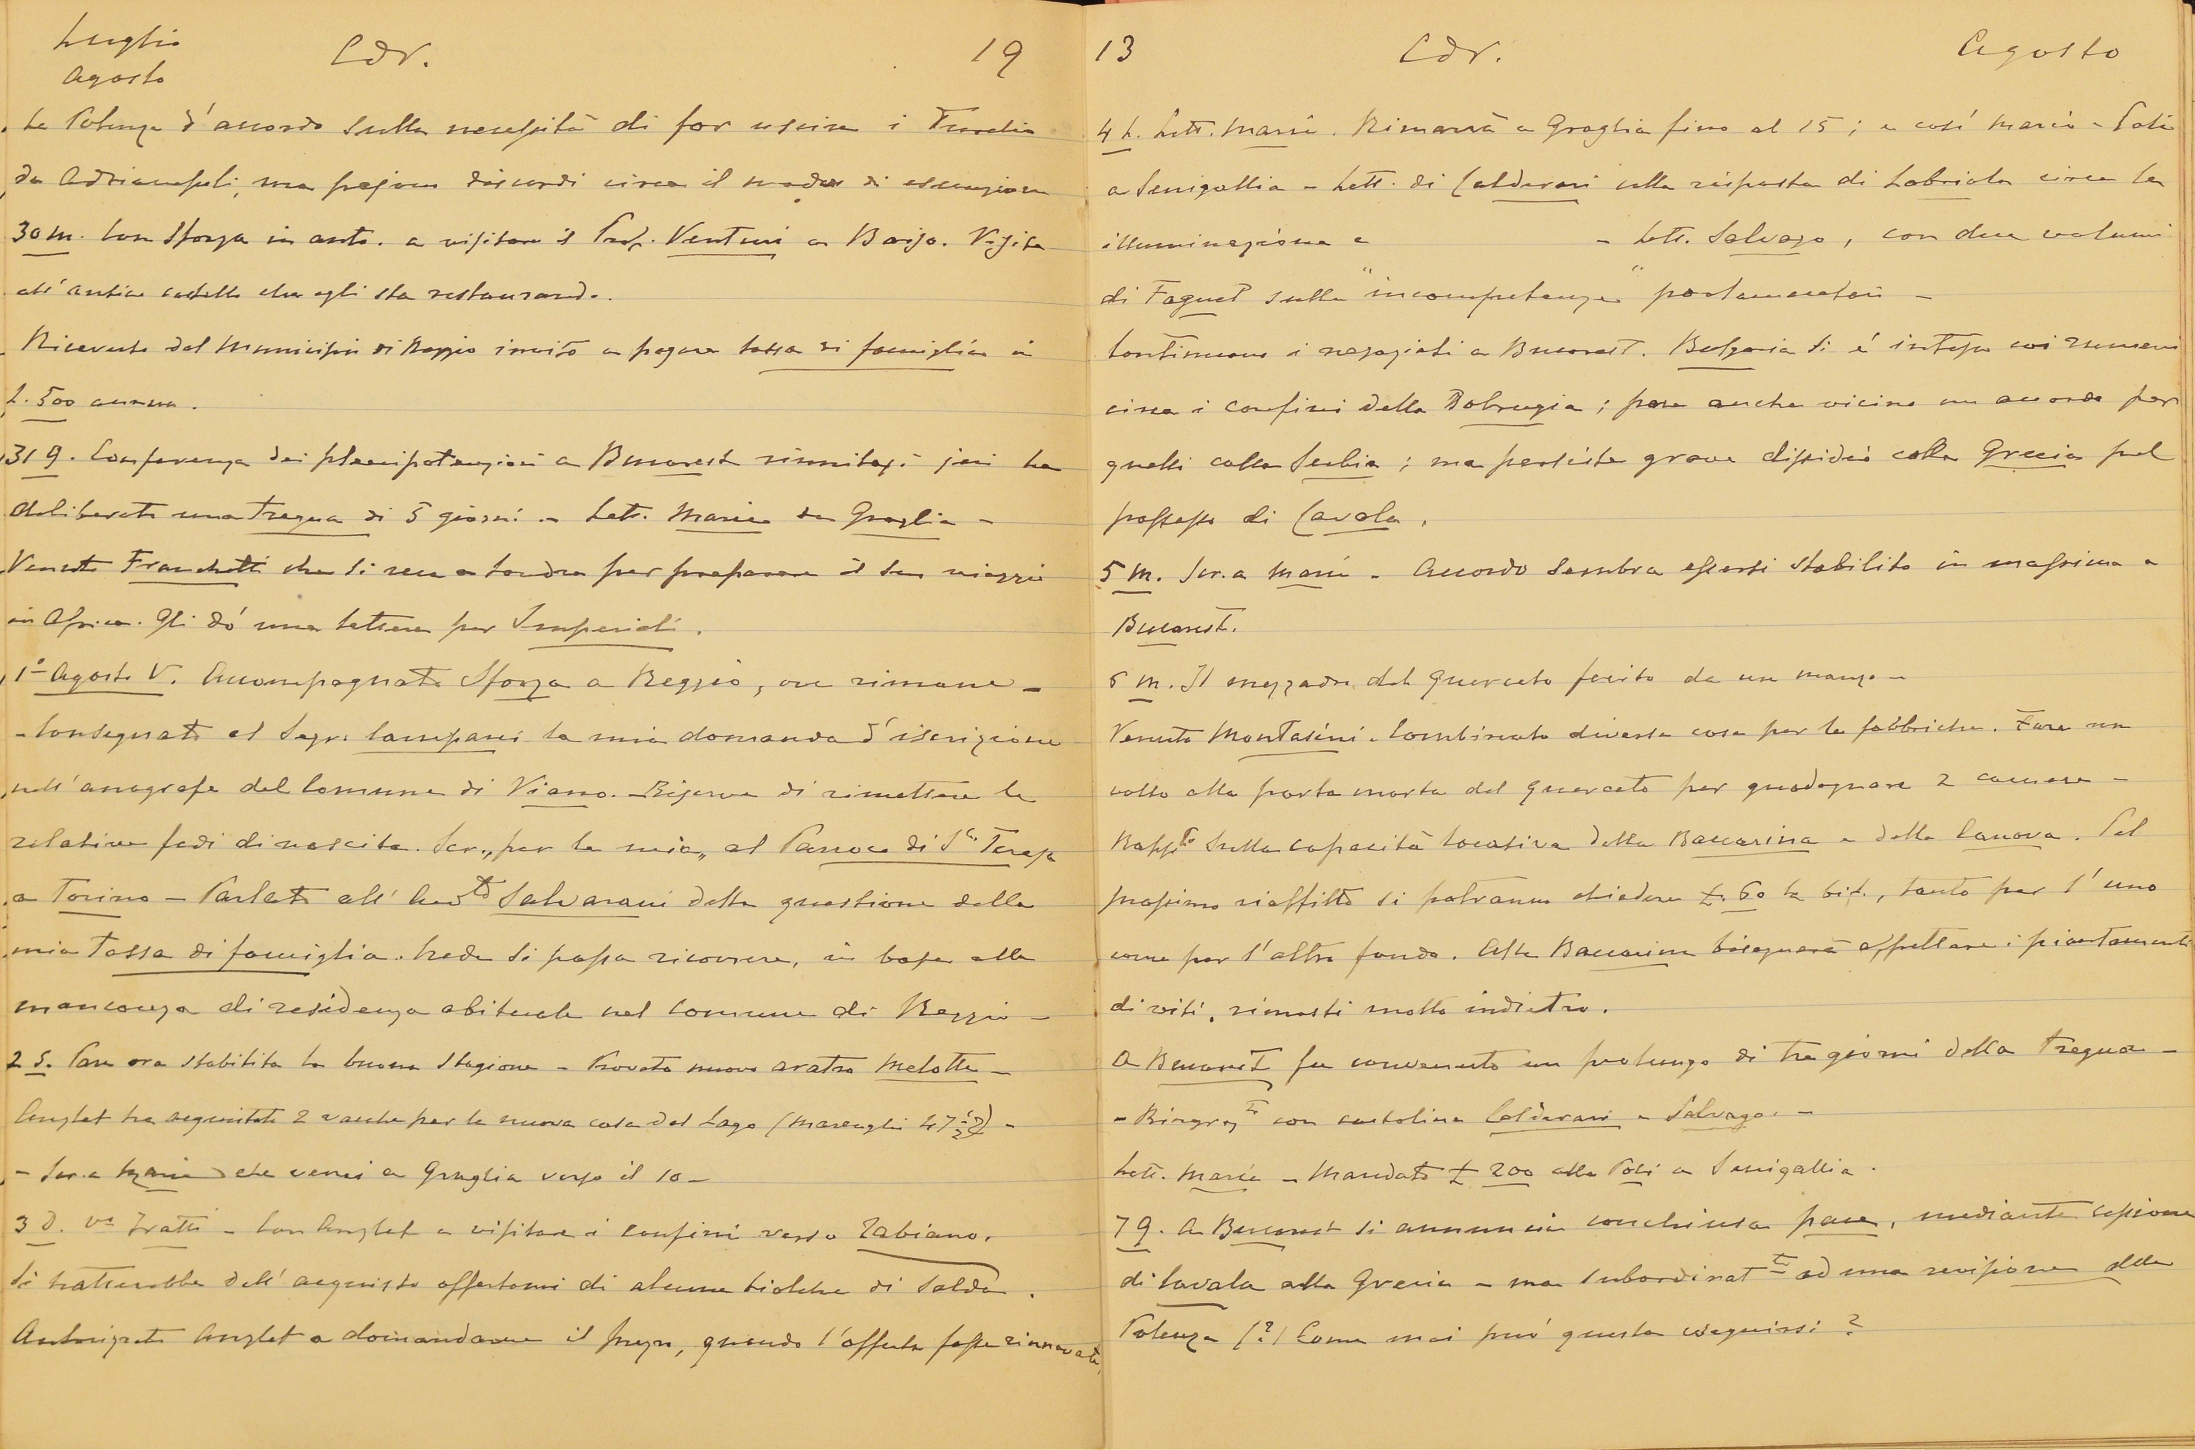 Luglio
Agosto
CdV.
19
Le Potenze d'accordo sulla necessità di far uscire i Turchi
da Adrianopoli, ma pajono discordi circa il modo di esecuzione
30 M. Con Sforza in auto. a visitare il Prof. Venturi a Baiso. Visita
all'antico castello che egli sta restaurando.
Ricevuto dal Municipio di Reggio invito a pagare tassa di famiglia in
L. 500 annue.
31 G. Conferenza dei plenipotenziari a Bucarest riunitasi jeri ha
deliberato una tregua di 5 giorni. - Lett. Maria da Graglia -
Venuto Franchetti che si reca a Londra per preparare il suo viaggio
in Africa. Gli dò una lettera per Imperiali.
1° Agosto V. Accompagnato Sforza a Reggio, ove rimane -
- Consegnato al Segr. Campani la mia domanda d'iscrizione
nell'anagrafe del Comune di Viano. Riserva di rimettere le
relative fedi di nascita. Scr. „per la mia„ al Parroco di Sa. Teresa
a Torino - Parlato all' Avvto Salvarani della questione della
mia Tassa di famiglia. Crede si possa ricorrere, in base alla
mancanza di residenza abituale nel Comune di Reggio -
2 S. Pare ora stabilita la buona stagione - Provato nuovo aratro Melotte -
Anglet ha acquistato 2 vacche per la nuova casa del Lago (marenghi 47 1/2) -
- Scr. a Maria che venei a Graglia verso il 10 -
3 D. Va Tratti - Con Anglet a visitare i confini verso Zabiano.
Si tratterebbe dell'acquisto offertomi di alcune biolche di Saldo.
Autorizzato Anglet a domandarne il prezzo, quando l'offerta fosse rinnovata.
13
CdV.
Agosto
4 L. Lett. Maria. Rimarrà a Graglia fino al 15; e così Mario - Poli
a Senigallia - Lett. di Calderari colla risposta di Labriola circa la
illuminazione e - Lett. Salvago, con due volumi
di Faguet sulla "incompetenza" parlamentare -
Continuano i negoziati a Bucarest. Bulgaria si è intesa coi rumeni
circa i confini della Dobrugia; pare anche vicino un accordo per
quelli colla Serbia; ma persiste grave dissidio colla Grecia pel
possesso di Cavala.
5 M. Scr. a Maria - Accordo sembra essersi stabilito in massima a
Bucarest.
6 M. Il mezzadro del Querceto ferito da un manzo -
Venuto Montasini. Combinato diverse cose per le fabbriche. Fare un
volto alla porta morta del Querceto per guadagnare 2 camere -
Rappto sulla capacità locativa della Baccarina e della Canova. Pel
prossimo riaffitto si potranno chiedere £. 60 la bif., tanto per l'uno
come per l'altro fondo. Alla Baccarina bisognerà affrettare i piantamenti
di viti, rimasti molto indietro.
A Bucarest fu convenuto un prolungo di tre giorni della tregua -
- Ringrazto con cartolina Calderari e Salvago. -
Lett. Maria - Mandato £ 200 alla Poli a Senigallia.
7 G. A Bucarest si annuncia conchiusa pace, mediante cessione
di Cavala alla Grecia - ma subordinatte ad una revisione delle
Potenze (?) Come mai può questa eseguirsi?